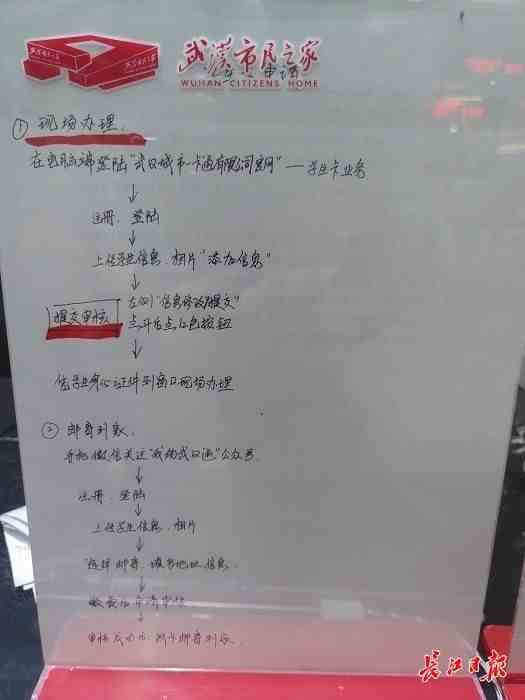 武汉市民之家
WUHAN CITIZENS HOME
① 现场办理.
在电脑端登陆"武汉城市一卡通有限公司官网"——学生卡业务
↓
注册、登陆
↓
上传学生信息、相片"添加信息"
↓
提交审核 左侧"信息修改及提交"
点开后点红色按钮
↓
学生身份证件到窗口现场办理
② 邮寄到家.
手机微信关注"我的武汉通"公众号.
↓
注册、登陆
↓
上传学生信息、相片
↓
选择邮寄、填写地址信息.
↓
缴费后
↓
审核成功后
邮寄到家.
长江日报